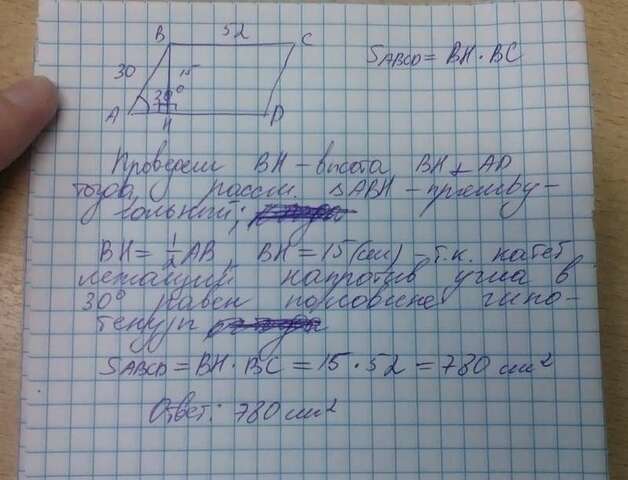 B 52 C
30 15
30°
A H D
S ABCD = BH · BC
Проведем BH – высота BH ⊥ AD
тогда рассм. △ABH – прямоу-
гольный;
BH = 1/2 AB, BH = 15 (см) – т.к. катет
лежащий напротив угла в
30° равен половине гипо-
тенузы
S ABCD = BH · BC = 15 · 52 = 780 см²
Ответ: 780 см²